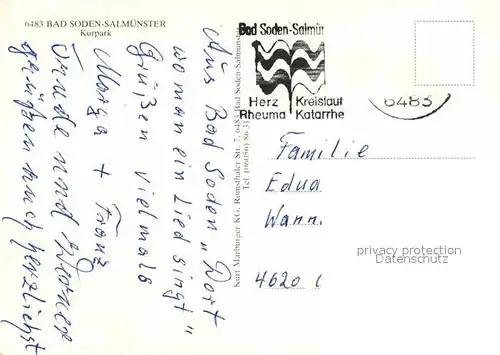 6483 BAD SODEN-SALMÜNSTER
Kurpark
Aus Bad Soden „Dort
wo man ein Lied singt"
Grüßen vielmals
Marga + Franz
Trude und Werner
grüßen auch herzlichst
Kurt Marburger KG. Romsthaler Str. 7, 6483 Bad Soden-Salmünster
Tel. (06056)
Bad Soden-Salmür
Herz Kreislauf
Rheuma Katarrhe
6483
Familie
Edua
Wann.
4620
privacy protection
Datenschutz